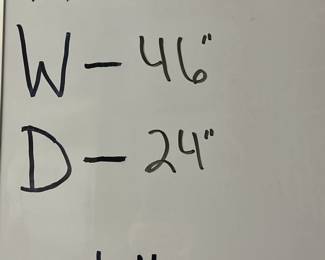 W - 46"
D - 24"